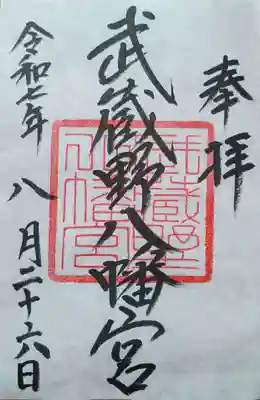 奉拝
武蔵野八幡宮
武蔵野八幡宮
令和七年八月二十六日